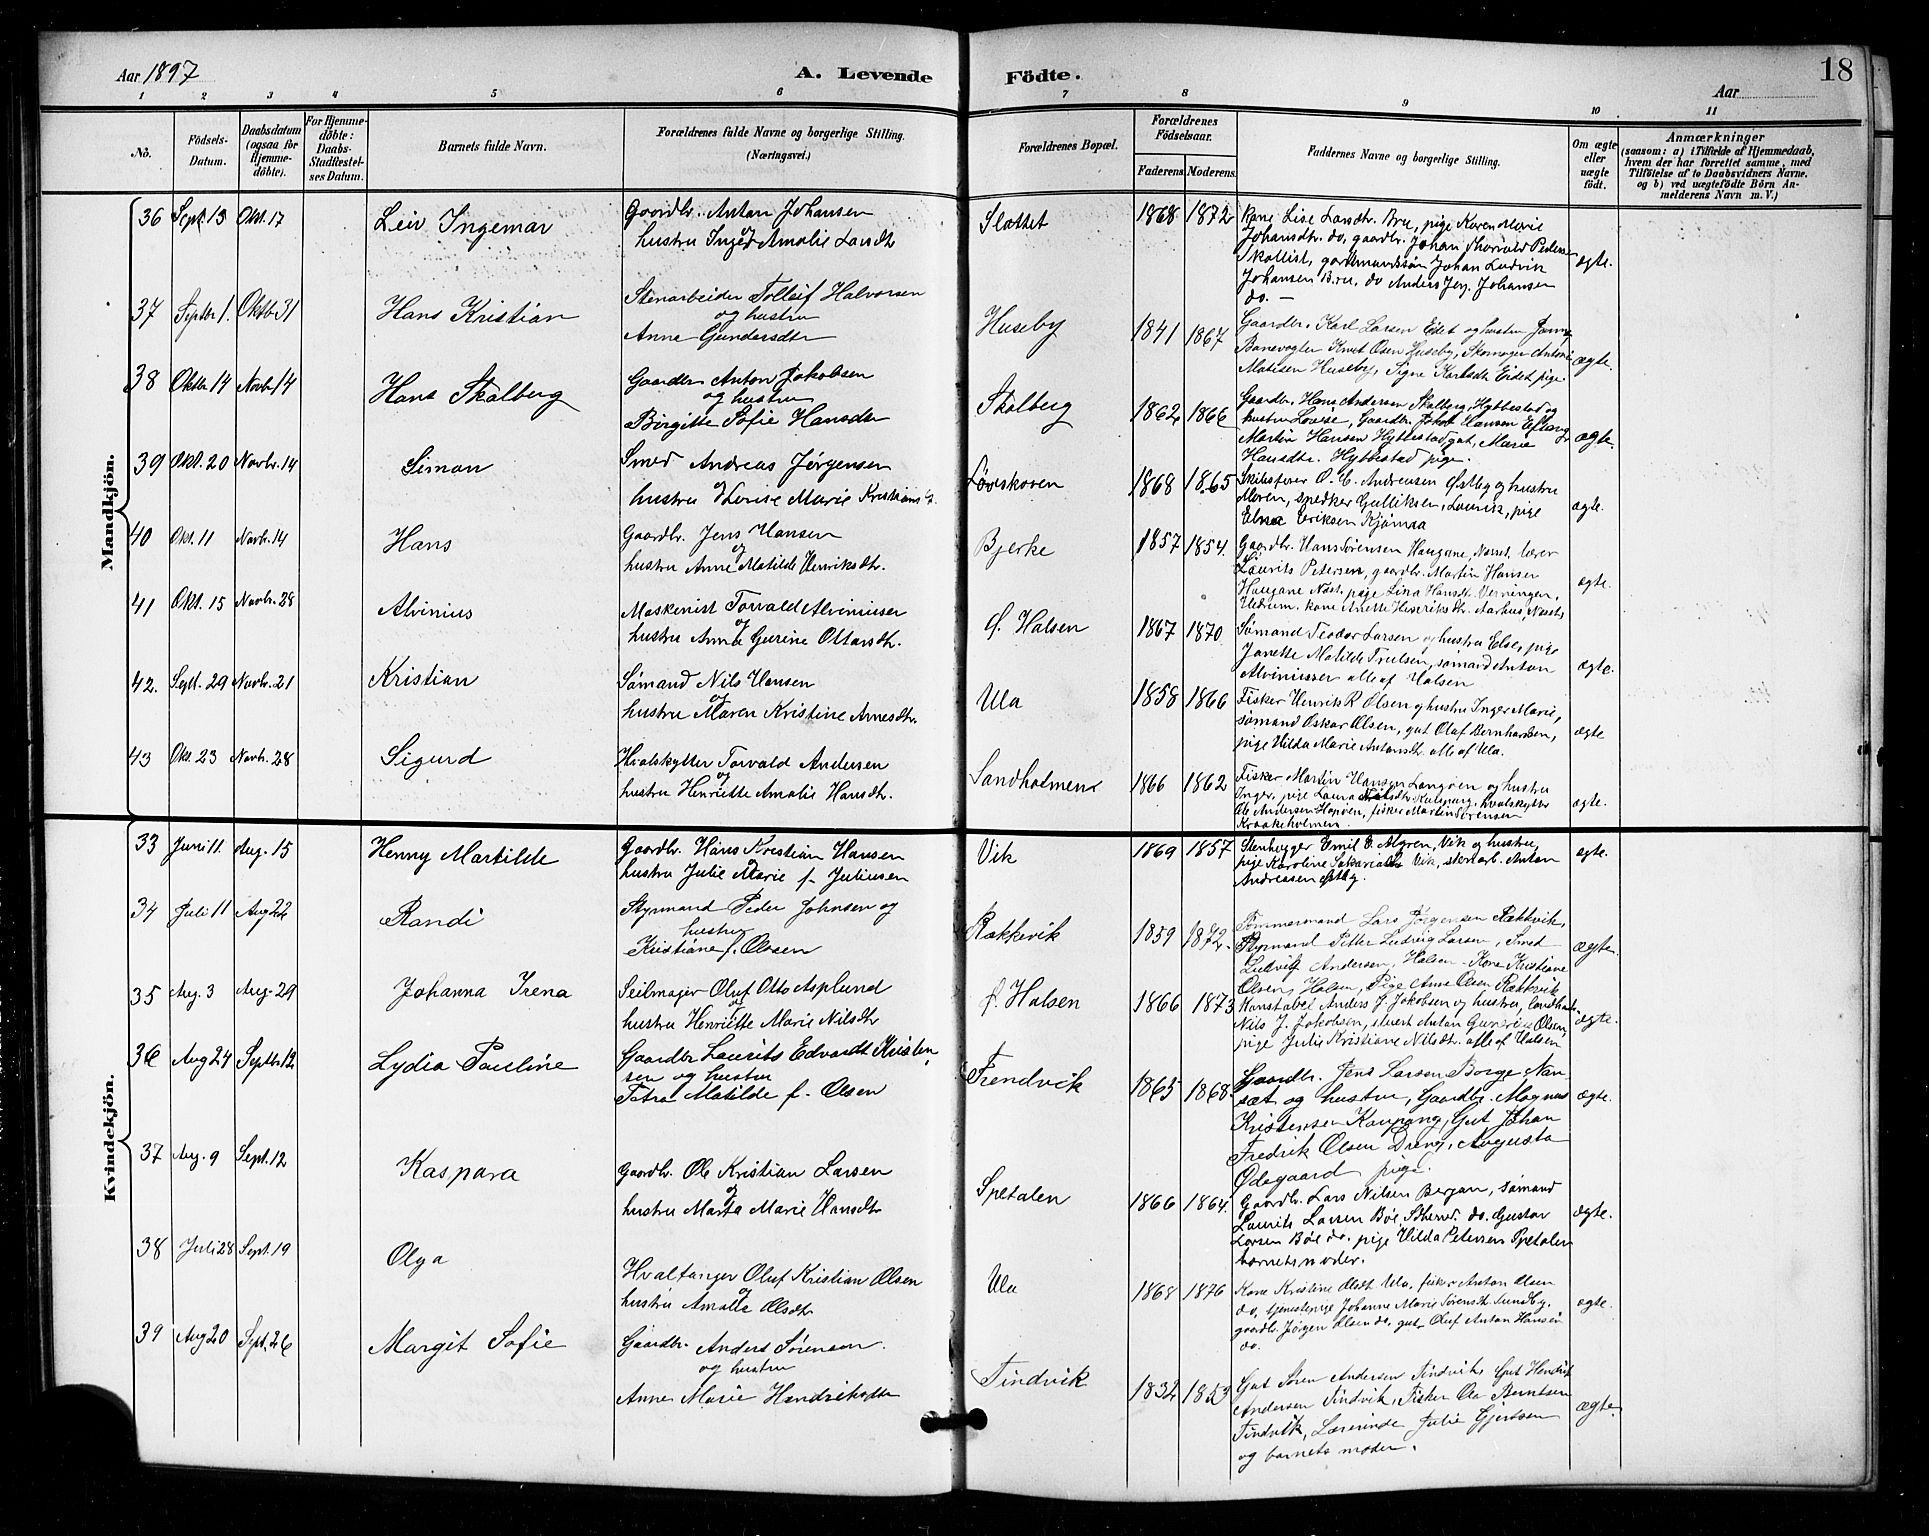 Aar 1897
A. Levende
Födte.
18
Aar
1 2 3 4 5 6 7 8 9 10 11
No.
Födsels-Datum.
Daabsdatum (ogsaa for Hjemme-döbte).
For Hjemme-döbte: Daabs-Stadfestel-ses Datum.
Barnets fulde Navn.
Forældrenes fulde Navne og borgerlige Stilling. (Næringsvei.)
Forældrenes Bopæl.
Forældrenes Födselsaar.
Faderens. Moderens.
Faddernes Navne og borgerlige Stilling.
Om ægte eller uægte födt.
Anmærkninger
(saasom: a) i Tilfælde af Hjemmedaab,
hvem der har forrettet samme, med
Tilföielse af to Daabsvidners Navne.
og b) ved uægtefödte Börn An-
melderens Navn m. V.)
Mandkjön.
36 Sept. 13 Okt. 17 Leiv Ingemar
Gaardbr. Anton Johansen
og
hustru Inger Amalie Larsdtr
Slottet 1868 1872
Kone Lise Larsdtr. Bru, pige Karen Marie
Johansdtr. do, gaardbr. Johan Thorvald Pedersen
Skallist, gaardmandssøn Johan Ludvik
Johansen Bru, do Anders Jørg. Johansen
do. —
ægte.
37 Septbr 1. Oktbr 31 Hans Kristian
Stenarbeider Tollef Halvorsen
og hustru
Anne Gundersdtr
Huseby 1841 1867
Gaardbr. Karl Larsen Eidet og hustru
Banevogter Knut Olsen Huseby, Skomager Anton
Matisen Huseby, Signe Karlsdtr Eidet pige
ægte.
38 Oktbr 14 Novbr. 14 Hans Skalberg
Gaardbr. Anton Jakobsen
og hustru
Birgitte Sofie Hansdtr
Skalberg 1862 1866
Gaardbr. Hans Andersen Skalberg, Hybbestad og
hustru Lovise, Gaardbr. Jakob Hansen Eftang,
Martin Hansen Hybbestad gut, Marie
Hansdtr. Hybbestad pige.
ægte.
39 Okt. 20 Novbr. 14 Simon
Smed Andreas Jørgensen
og
hustru Lovise Marie Kristiansd.
Løvskoven 1868 1865
Skibsfører O. C. Andreasen Østby og hustru
Maren, snedker Gulliksen, Laurik, pige
Elna Eriksen Kjømsa
ægte.
40 Okt. 11 Novbr. 14 Hans
Gaardbr. Jens Hansen
og
hustru Anne Matilde Henriksdtr.
Bjerke 1857 1854.
Gaardbr. Hans Sørensen Haugane, Næset, lærer
Laurits Petersen, gaardbr. Martin Hansen
Haugane Næst, pige Lina Hansdtr. Verningen,
Hedrum. kone Anette Henriksdtr. Aarhus, Næset,
ægte.
41 Okt. 15 Novbr. 28 Alvinius
Maskenist Torvald Alviniussen
og
hustru Anna Gurine Ottarsdtr.
Ø. Halsen 1867 1870
Sømand Teodor Larsen og hustru Else, pige
Janette Matilde Trulsen, sømand Anton
Alviniussen alle af Halsen
ægte.
42. Sept. 29 Novbr. 21 Kristian
Sømand Nils Hansen
og
hustru Maren Kristine Arnesdtr.
Ula 1858 1866
Fisker Henrik R Olsen og hustru Inger Marie,
sømand Oskar Olsen, gut Olaf Bernhardsen,
pige Hilda Marie Antonsdtr. alle af Ula.
ægte
43 Okt. 23 Novbr. 28 Sigurd
Hvalskytter Torvald Andersen
og
hustru Henriette Amalie Hansdtr.
Sandholmen 1866 1862
Fisker Martin Hansen Langøen og hustru
Inger, pige Laura Nilsdtr. Kaupang, hvalskytter
Ole Andersen Hapøen, fisker Martin Sørensen
Kraakeholmen.
ægte.
Kvindekjön.
33 Juni 11. Aug. 15 Henny Martilde
Gaardbr. Hans Kristian Hansen
og
hustru Julie Marie f. Juliusen
Vik 1869 1857
Stenhugger Emil E. Myren, Vik og hustru,
pige Karoline Sakariasdtr Vik, stenarb. Anton
Andreassen Østby.
ægte.
34 Juli 11 Aug 22 Randi
Styrmand Peder Johnsen og
hustru
Kristiane f. Olsen
Rækkevik 1859 1872.
Tømmermand Lars Jørgensen Rækkvik,
Styrmand Petter Ludvig Larsen, Smed
Ludvig Andersen, Halsen. Kone Kristiane
Olsen, Halsen, Pige Anne Olsen Rækkvik
ægte.
35 Aug. 3 Aug. 29 Johanna Irena
Seilmager Oluf Otto Asplund
og
hustru Henriette Marie Nilsdtr
Ø. Halsen 1866 1873
Konstabel Anders J. Jakobsen og hustru,
Nils J. Jakobsen, stuert Anton Olsen,
pige Julie Kristiane Nilsdtr. alle af Halsen
ægte.
36 Aug 24 Septbr. 12 Lydia Pauline
Gaardbr Laurits Edvardt Kristen
sen og hustru
Petra Matilde f. Olsen
Frendvik 1865 1868
Gaardbr. Jens Larsen Borge Nan-
sæt og hustru, Gaardbr. Magnus
Kristensen Kaupang, Gut Johan
Fredrik Olsen Dreng, Augusta
Ødegaard pige.
ægte.
37 Aug. 9 Sept. 12 Kaspara
Gaardbr. Ole Kristian Larsen
og
hustru Marta Marie Hansdtr
Spetalen 1866 1864.
Gaardbr. Lars Nilsen Bergan, sømand
Laurits Larsen Bøe, do. Gustav
Larsen Bøe do. pige Hilda Petersen Spetalen
barnets moder.
ægte.
38 Juli 28 Sept. 19 Olga
Hvalfanger Oluf Kristian Olsen
og
hustru Amalie Olsdtr
Ula 1868 1876
Kone Kristine Olsdt Ula, fisker Anton Olsen
do, tjenestepige Johanne Marie Sørensdtr. Sundby,
gaardbr. Jørgen Olsen do. gut Oluf Anton Hansen
do.
ægte.
39 Aug 20 Sept. 26 Margit Sofie
Gaardbr. Anders Sørensen.
og hustru
Anne Marie Hendriksdtr
Tindvik 1832 1853
Gut Søren Andersen Tindvik, Gut Hendrik
Andersen Tindvik, Fisker Ole Berntsen
Tindvik, Lærerinde Julie Gjertsen
og barnets moder.
ægte.